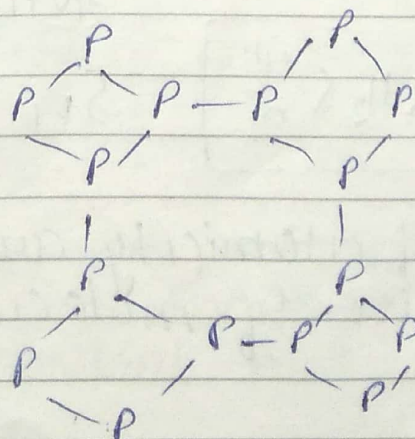 P P
P P — P P
P P
P P
P P — P P
P P